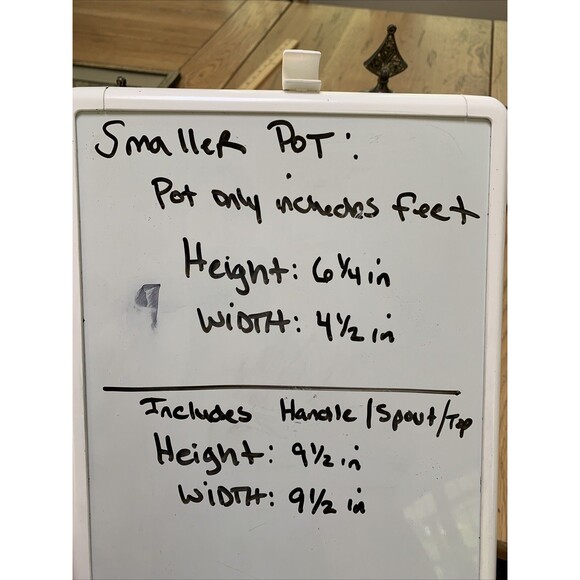 Smaller Pot:
Pot only includes feet
Height: 6 1/4 in
Width: 4 1/2 in
Includes Handle/Spout/Top
Height: 9 1/2 in
Width: 9 1/2 in